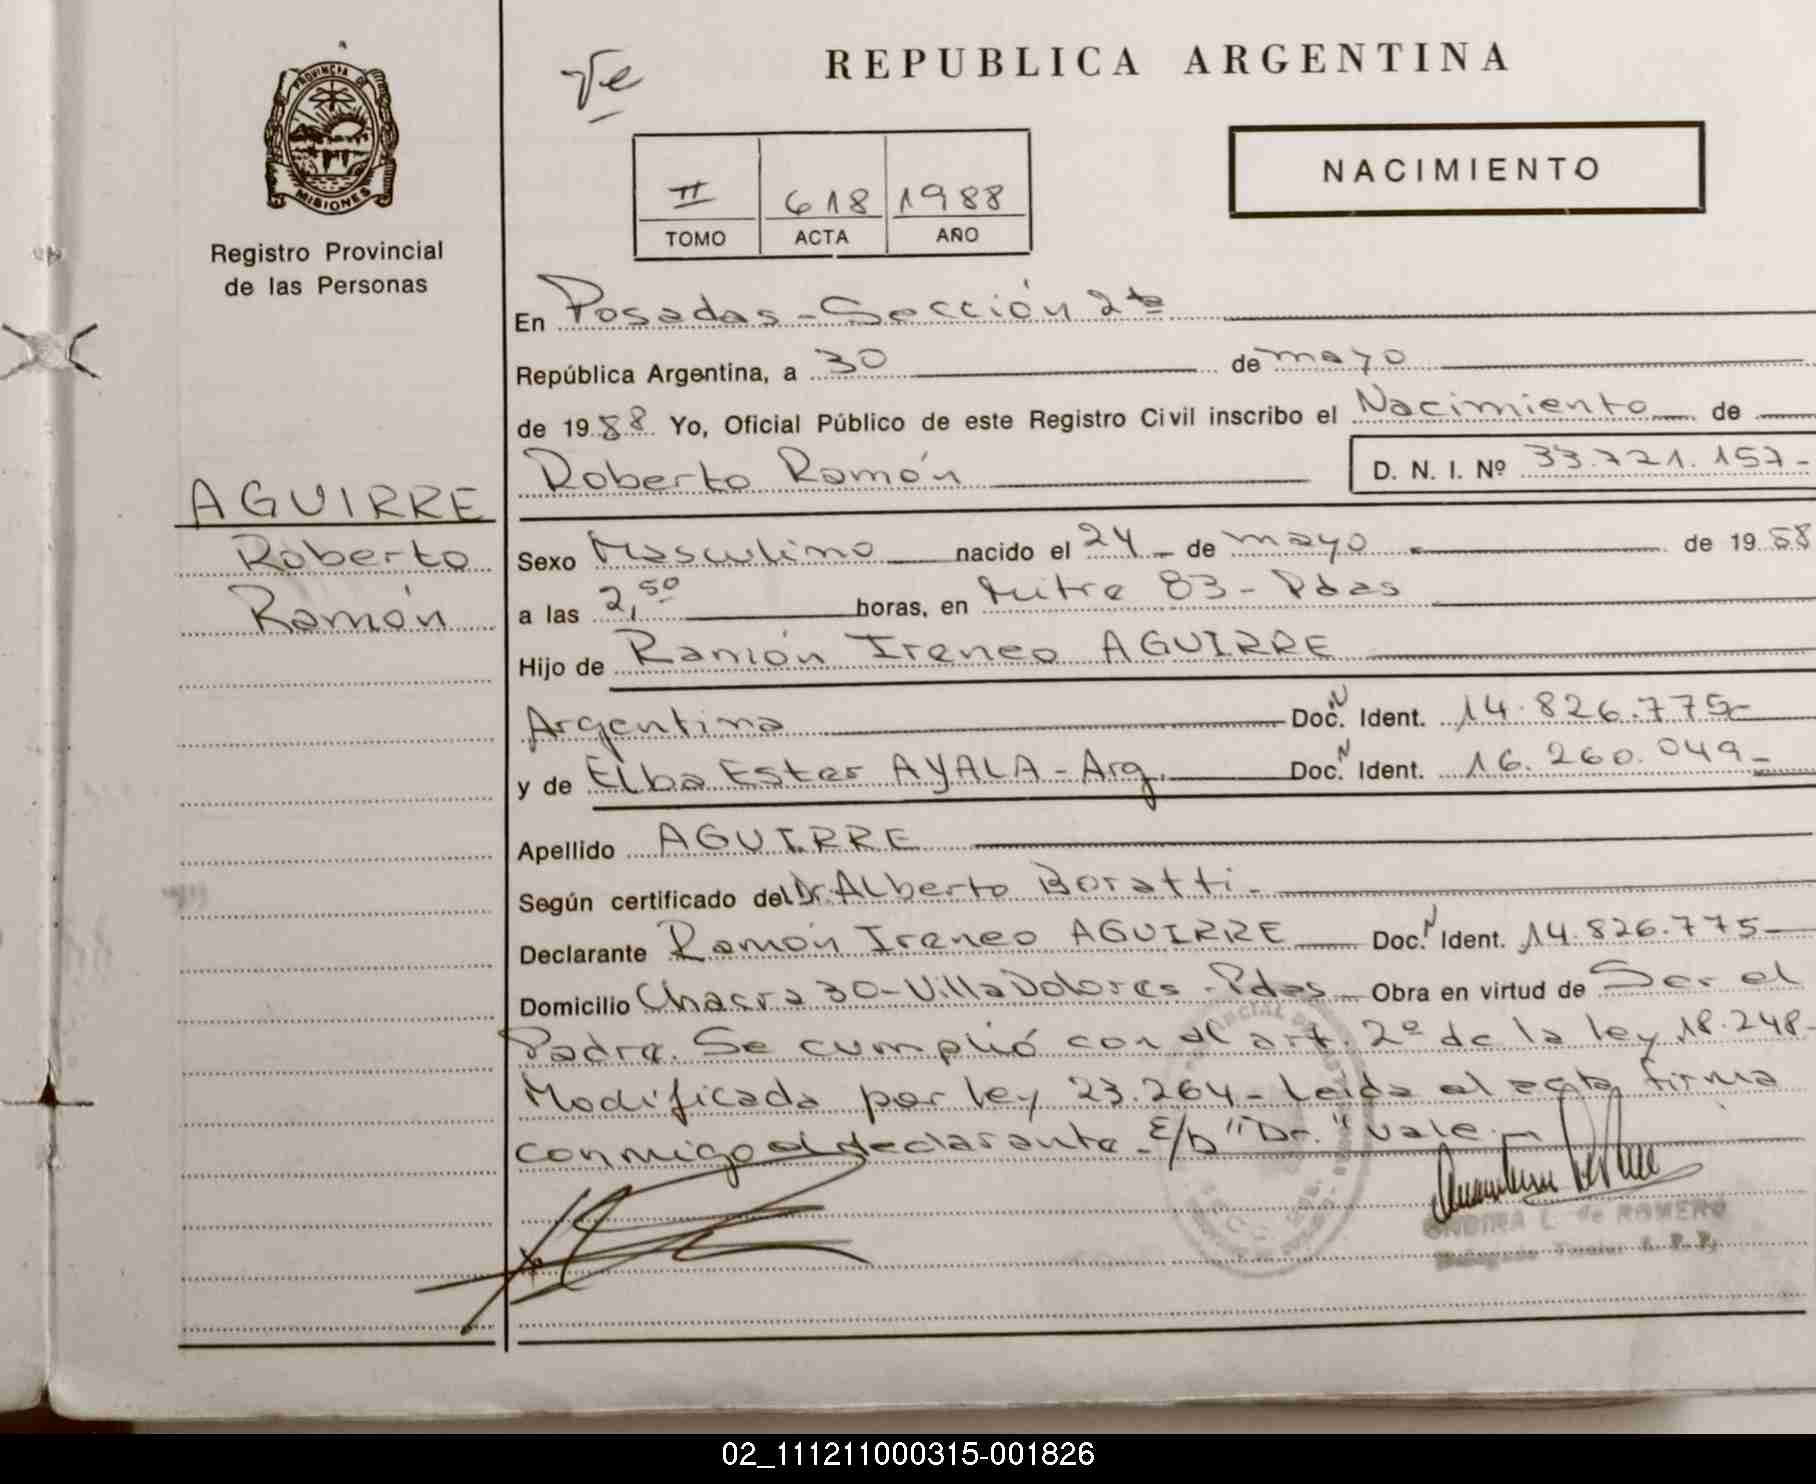 PROVINCIA DE
MISIONES
Registro Provincial
de las Personas
AGUIRRE
Roberto
Ramón
REPUBLICA ARGENTINA
NACIMIENTO
II 618 1988
TOMO ACTA AÑO
En Posadas - Sección 2da
República Argentina, a 30 de mayo
de 1988 Yo, Oficial Público de este Registro Civil inscribo el Nacimiento de
Roberto Ramón D. N. I. Nº 33.721.157-
Sexo Masculino nacido el 24 de mayo de 1988
a las 2,50 horas, en Mitre 83 - Pdas
Hijo de Ramón Ireneo AGUIRRE
Argentina Doc. N Ident. 14.826.775-
y de Elba Ester AYALA - Arg. Doc. N Ident. 16.260.049-
Apellido AGUIRRE
Según certificado del Dr. Alberto Boratti-
Declarante Ramón Ireneo AGUIRRE Doc. N Ident. 14.826.775-
Domicilio Chacra 30 - Villa Dolores - Pdas Obra en virtud de Ser el
Padre. Se cumplió con el art. 2º de la ley 18.248-
Modificada por ley 23.264 - Leida el acta firma
conmigo el declarante - E/D "Dr." vale -
L. de ROMERO
02_111211000315-001826